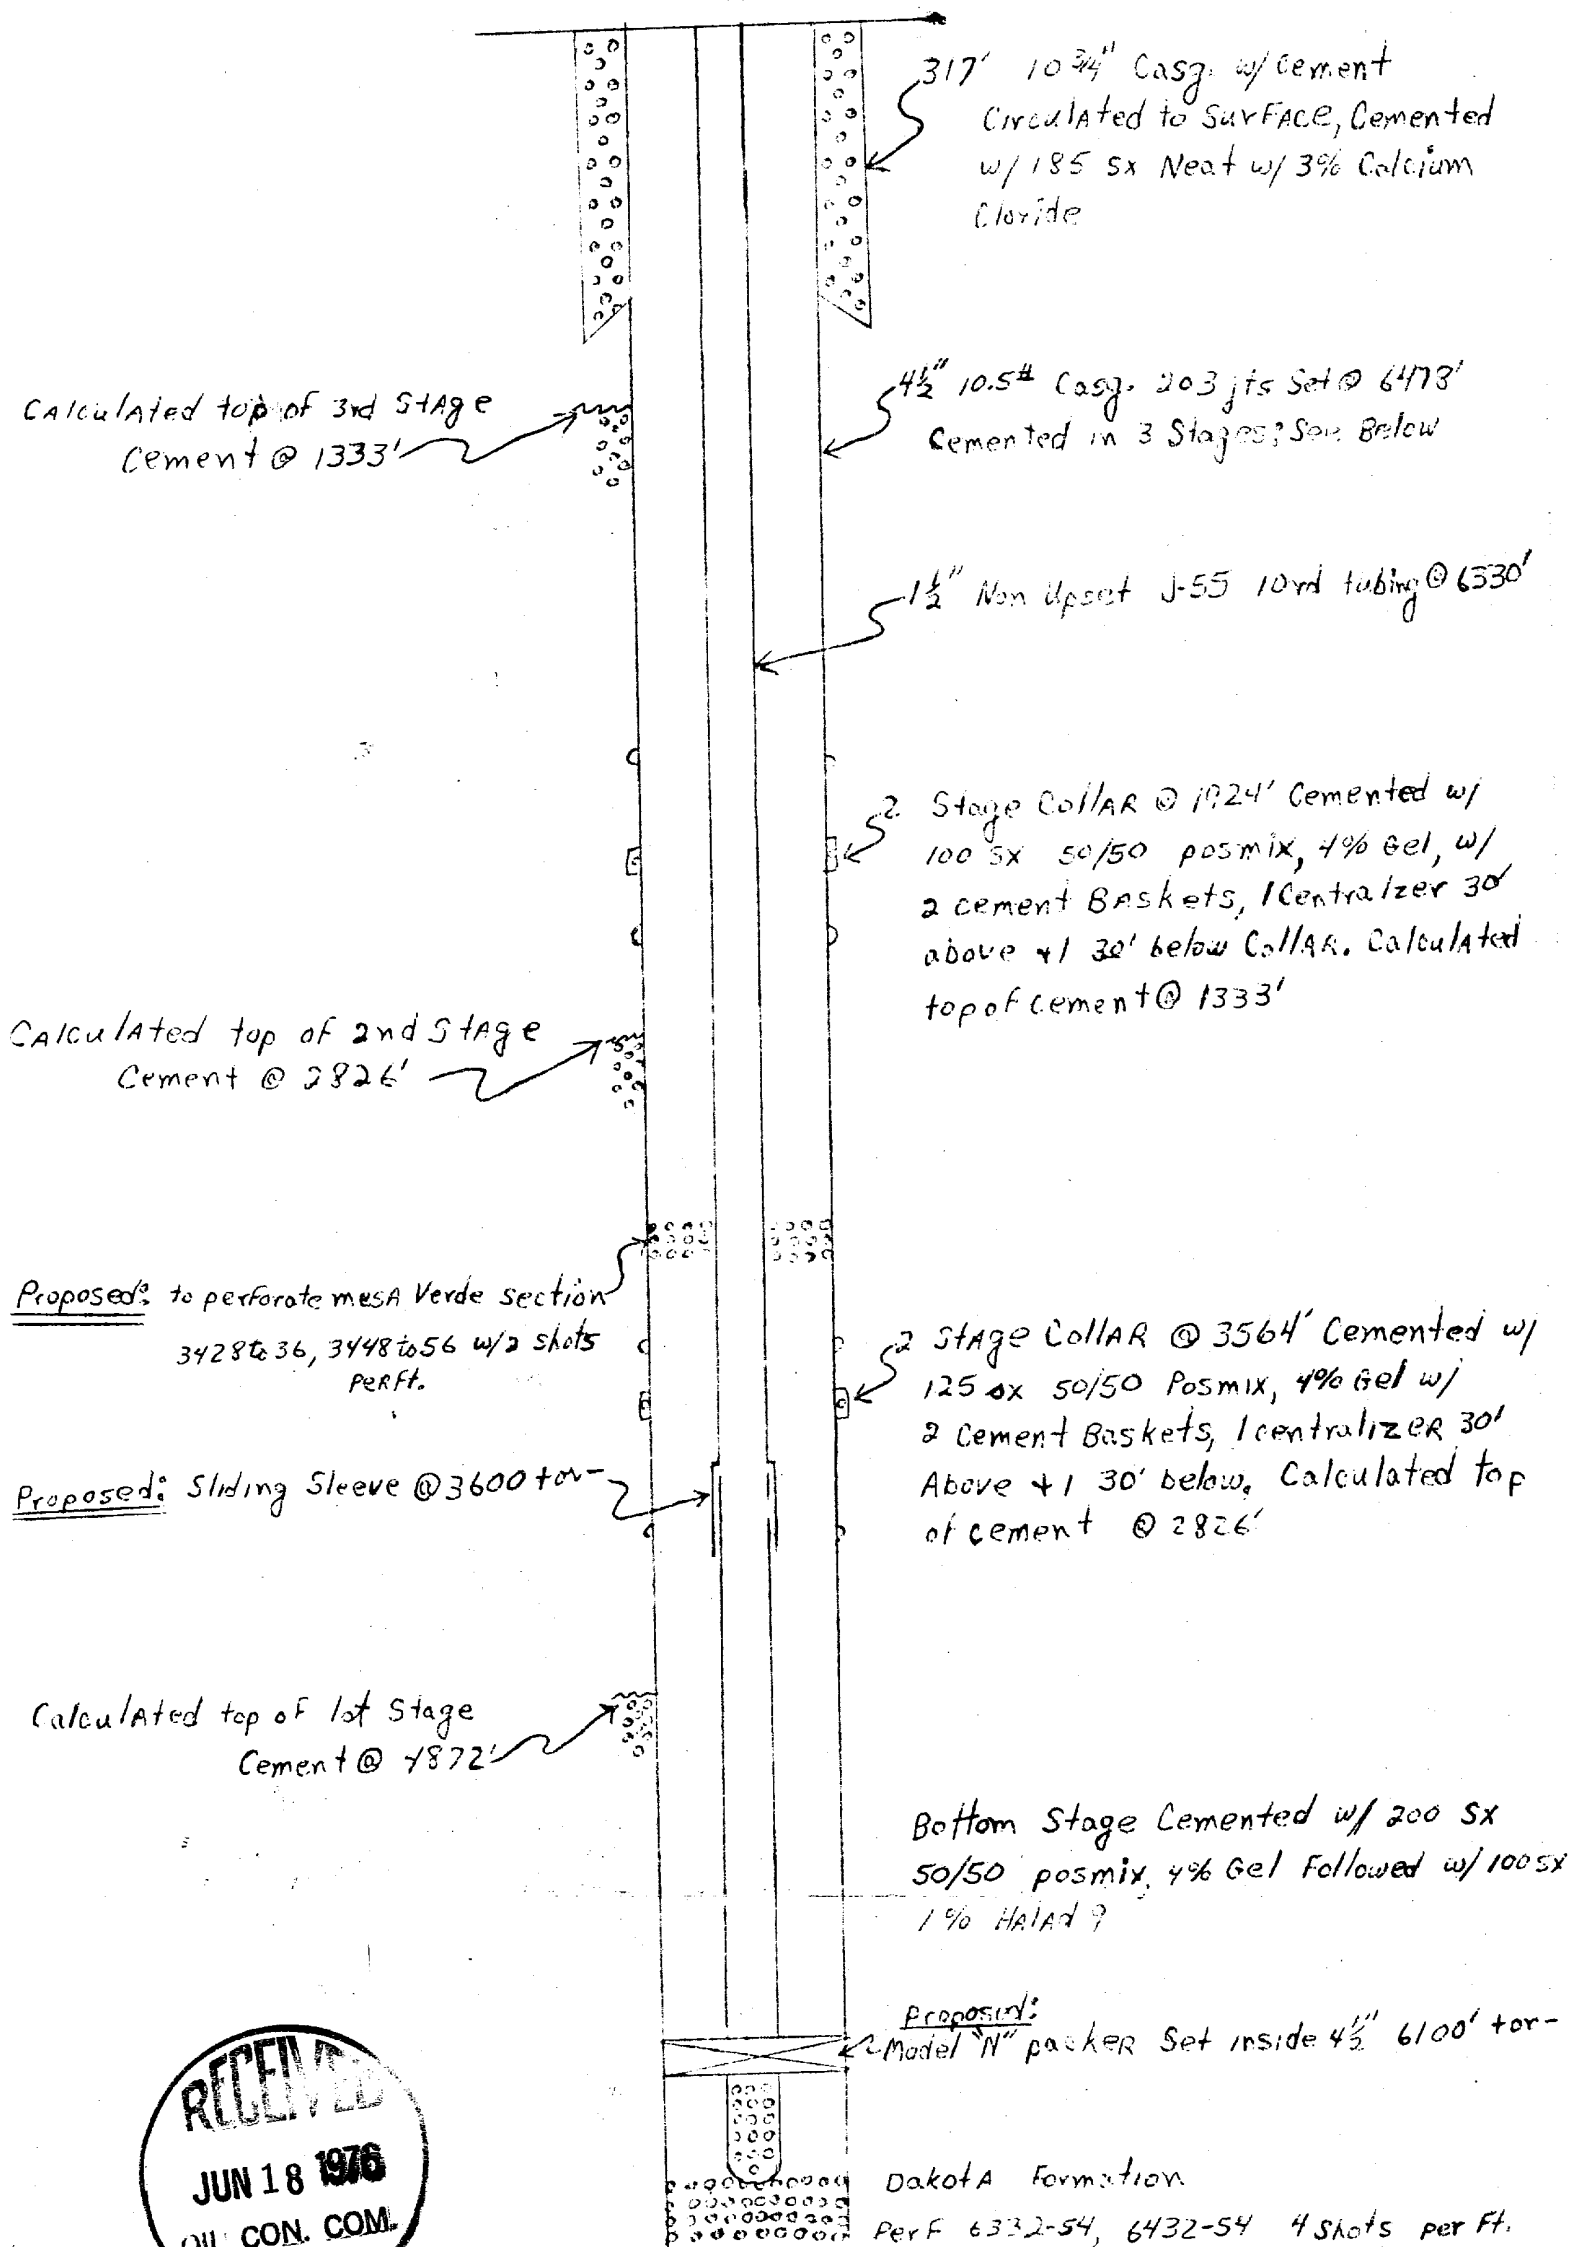 317' 10 3/4" Casg. w/ Cement
Circulated to Surface, Cemented
w/ 185 sx Neat w/ 3% Calcium
Cloride
4 1/2" 10.5# Casg. 203 jts Set @ 6478'
Cemented in 3 Stages; See Below
Calculated top of 3rd Stage
Cement @ 1333'
1 1/2" Non Upset J-55 10rd tubing @ 6330'
2 Stage Collar @ 1924' Cemented w/
100 sx 50/50 posmix, 4% Gel, w/
2 cement Baskets, 1 Centralzer 30'
above +1 30' below Collar. Calculated
top of cement @ 1333'
Calculated top of 2nd Stage
Cement @ 2826'
Proposed: to perforate mesa Verde section
3428 to 36, 3448 to 56 w/2 shots
per Ft.
2 Stage Collar @ 3564' Cemented w/
125 sx 50/50 Posmix, 4% Gel w/
2 Cement Baskets, 1 centralizer 30'
Above +1 30' below. Calculated top
of cement @ 2826'
Proposed: Sliding Sleeve @ 3600 +or-
Calculated top of 1st Stage
Cement @ 4872'
Bottom Stage Cemented w/ 200 sx
50/50 posmix, 4% Gel Followed w/ 100 sx
1% Halad 9
Proposed:
Model "N" packer Set inside 4 1/2" 6100' +or-
Dakota Formation
Perf 6332-54, 6432-54 4 Shots per Ft.
RECEIVED
JUN 18 1976
OIL CON. COM.